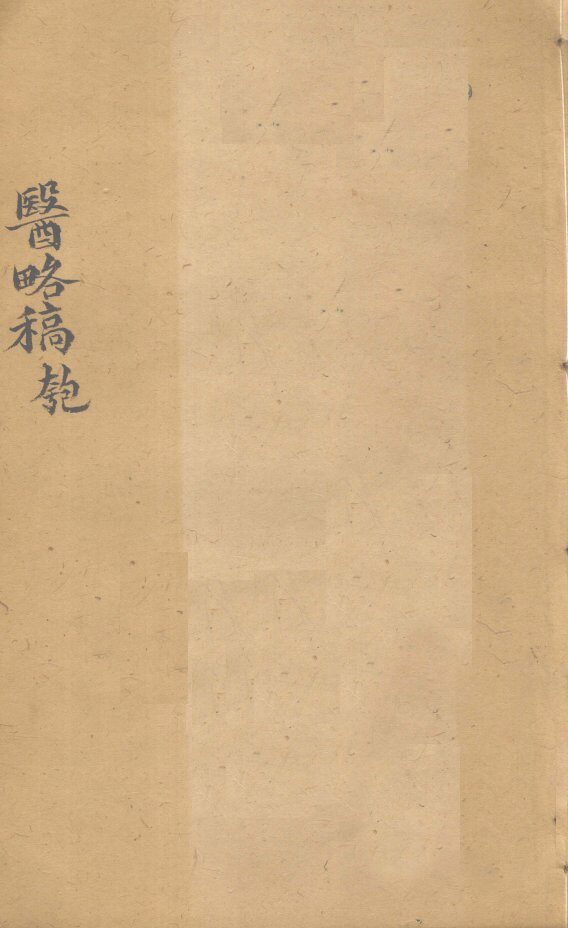 醫略稿匏